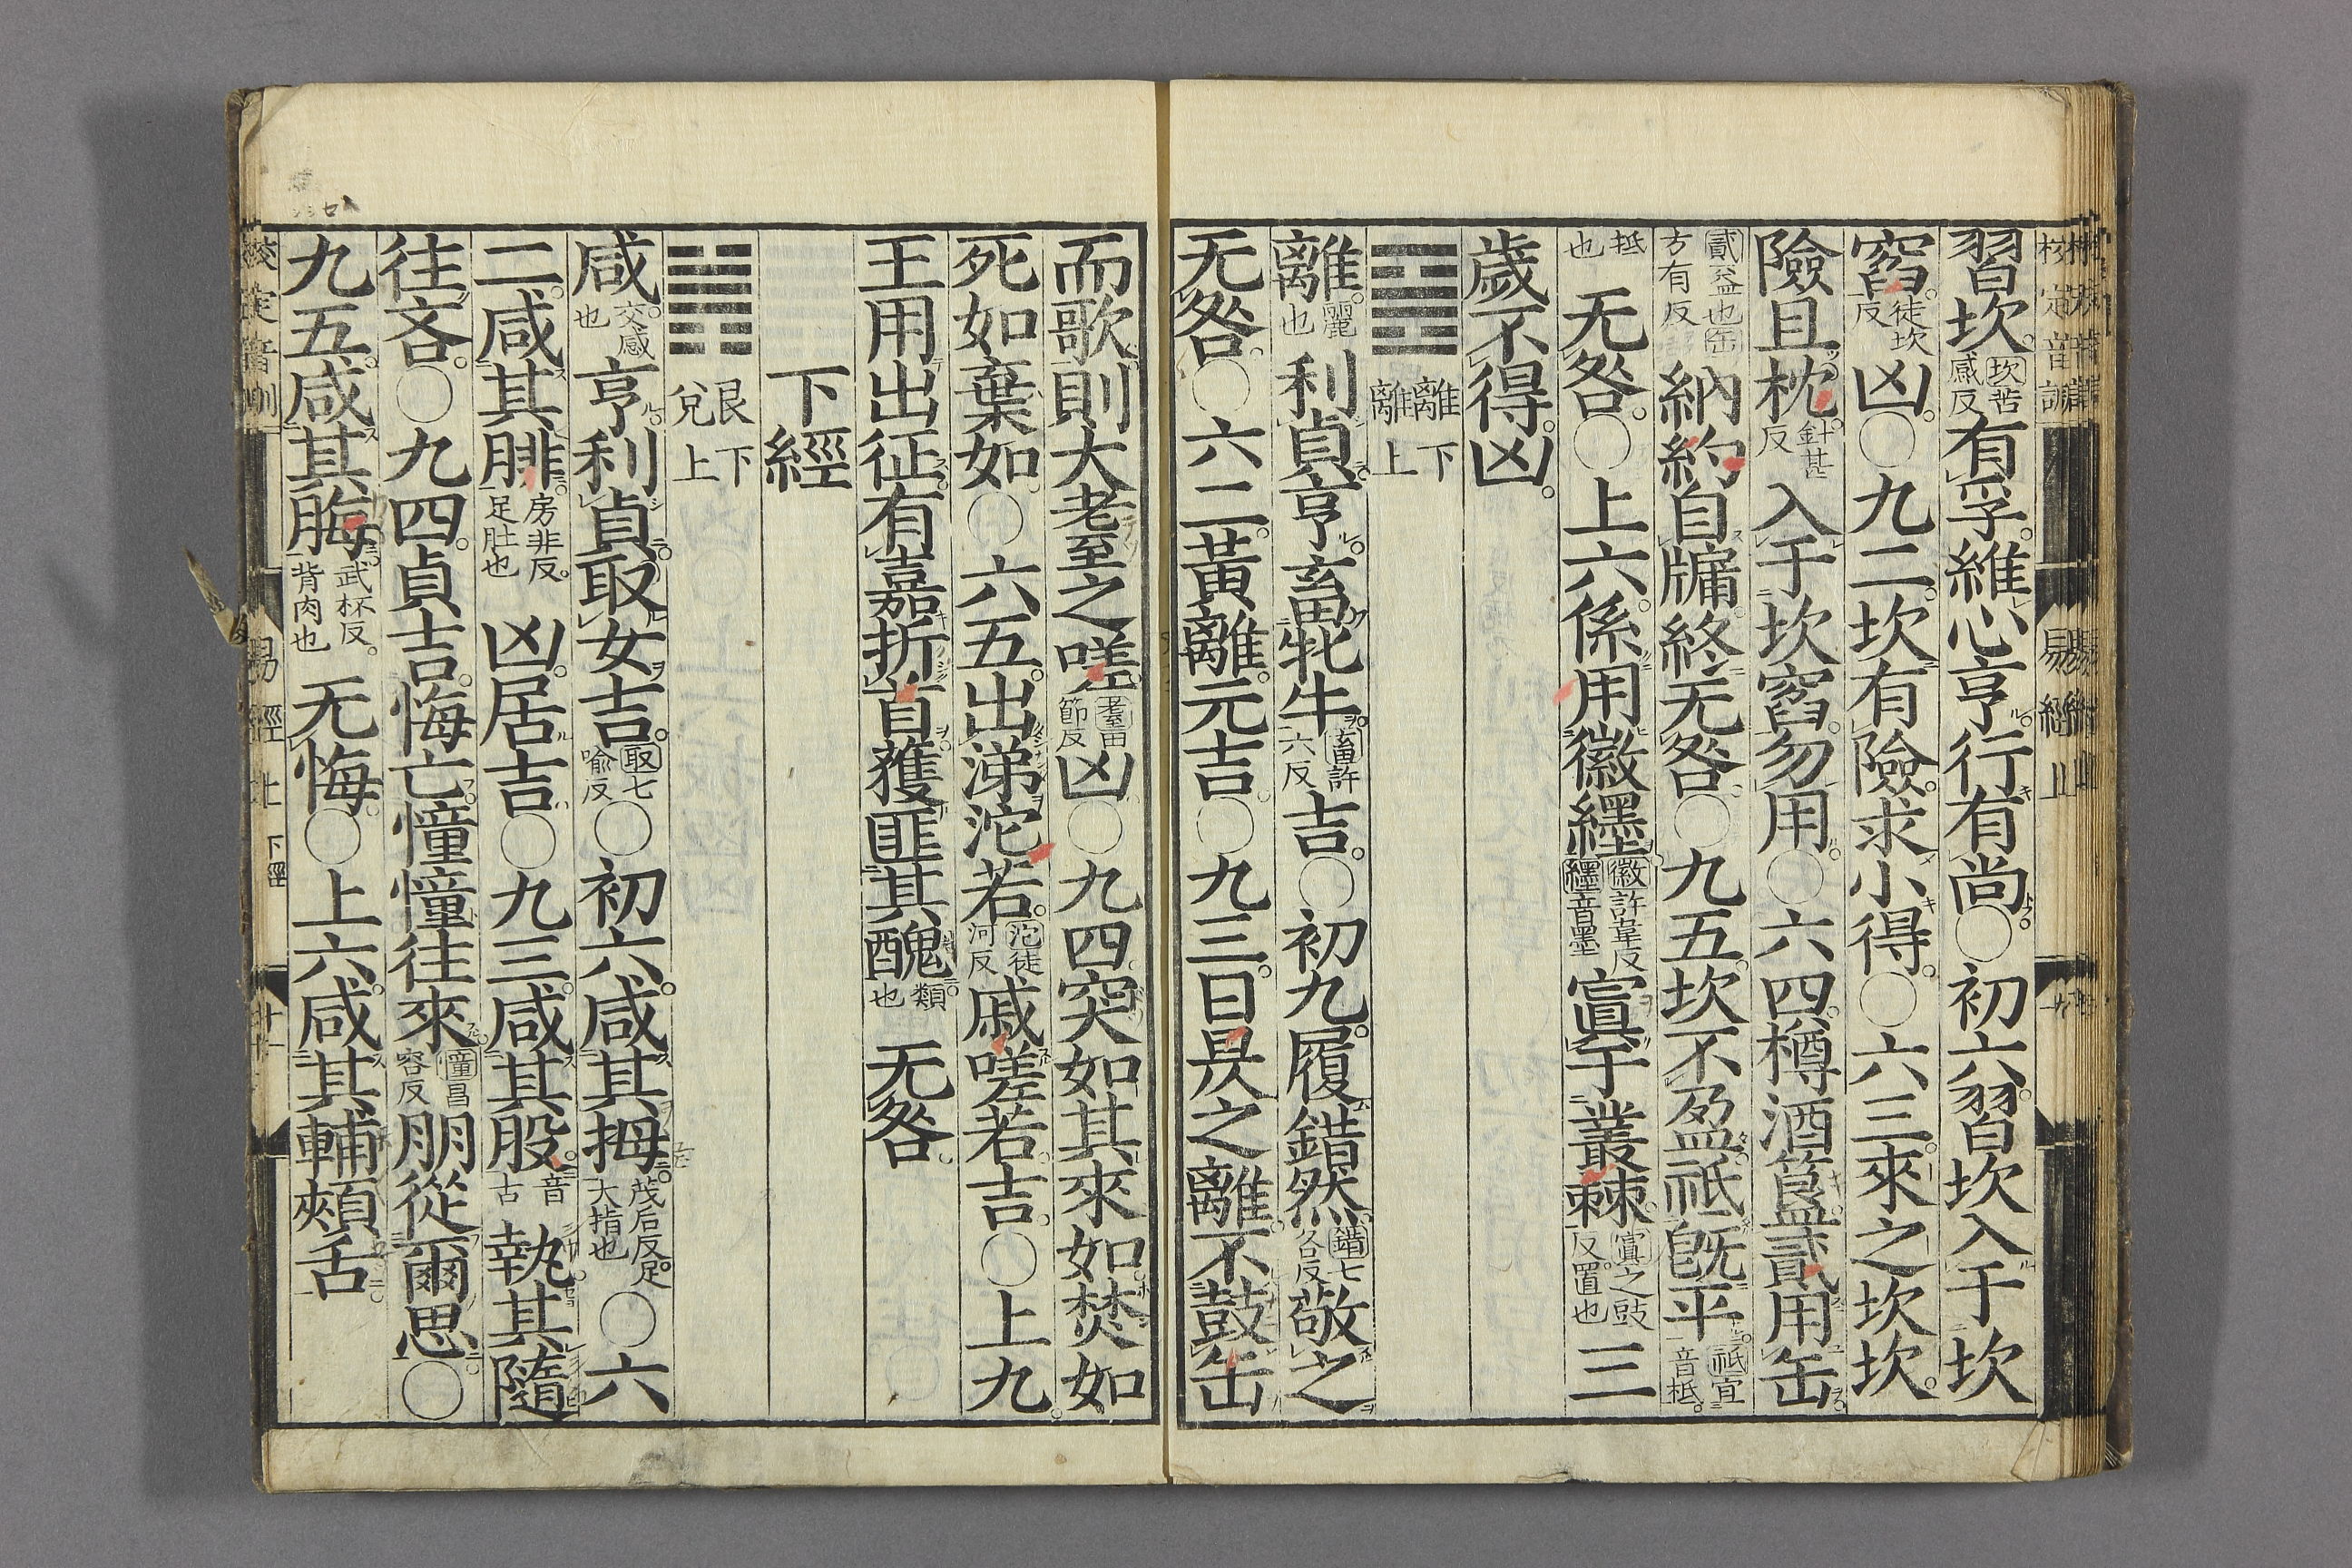 習坎坎苦感反有孚維心亨行有尚〇初六習坎入于坎
窞徒坎反凶〇九二坎有險求小得〇六三來之坎坎
險且枕針甚反入于坎窞勿用〇六四樽酒簋貳用缶
貳益也缶方有反納約自牖終无咎〇九五坎不盈祗既平祗宜音柢
柢也无咎〇上六係用徽纆徽許韋反纆音墨寘于叢棘寘之豉反置也三
歲不得凶
離下離上
離麗也利貞亨畜牝牛畜許六反吉〇初九履錯然錯七各反敬之
无咎〇六二黃離元吉〇九三日昃之離不鼓缶
而歌則大耋之嗟耋田節反凶〇九四突如其來如焚如
死如棄如〇六五出涕沱若沱徒河反戚嗟若吉〇上九
王用出征有嘉折首獲匪其醜類也无咎
下經
艮下兌上
咸交感也亨利貞取女吉取七喻反〇初六咸其拇茂后反足大指也〇六
二咸其腓房非反足肚也凶居吉〇九三咸其股音古執其隨
往吝〇九四貞吉悔亡憧憧往來憧昌容反朋從爾思〇
九五咸其脢武杯反背肉也无悔〇上六咸其輔頰舌
易經上 下經 二十